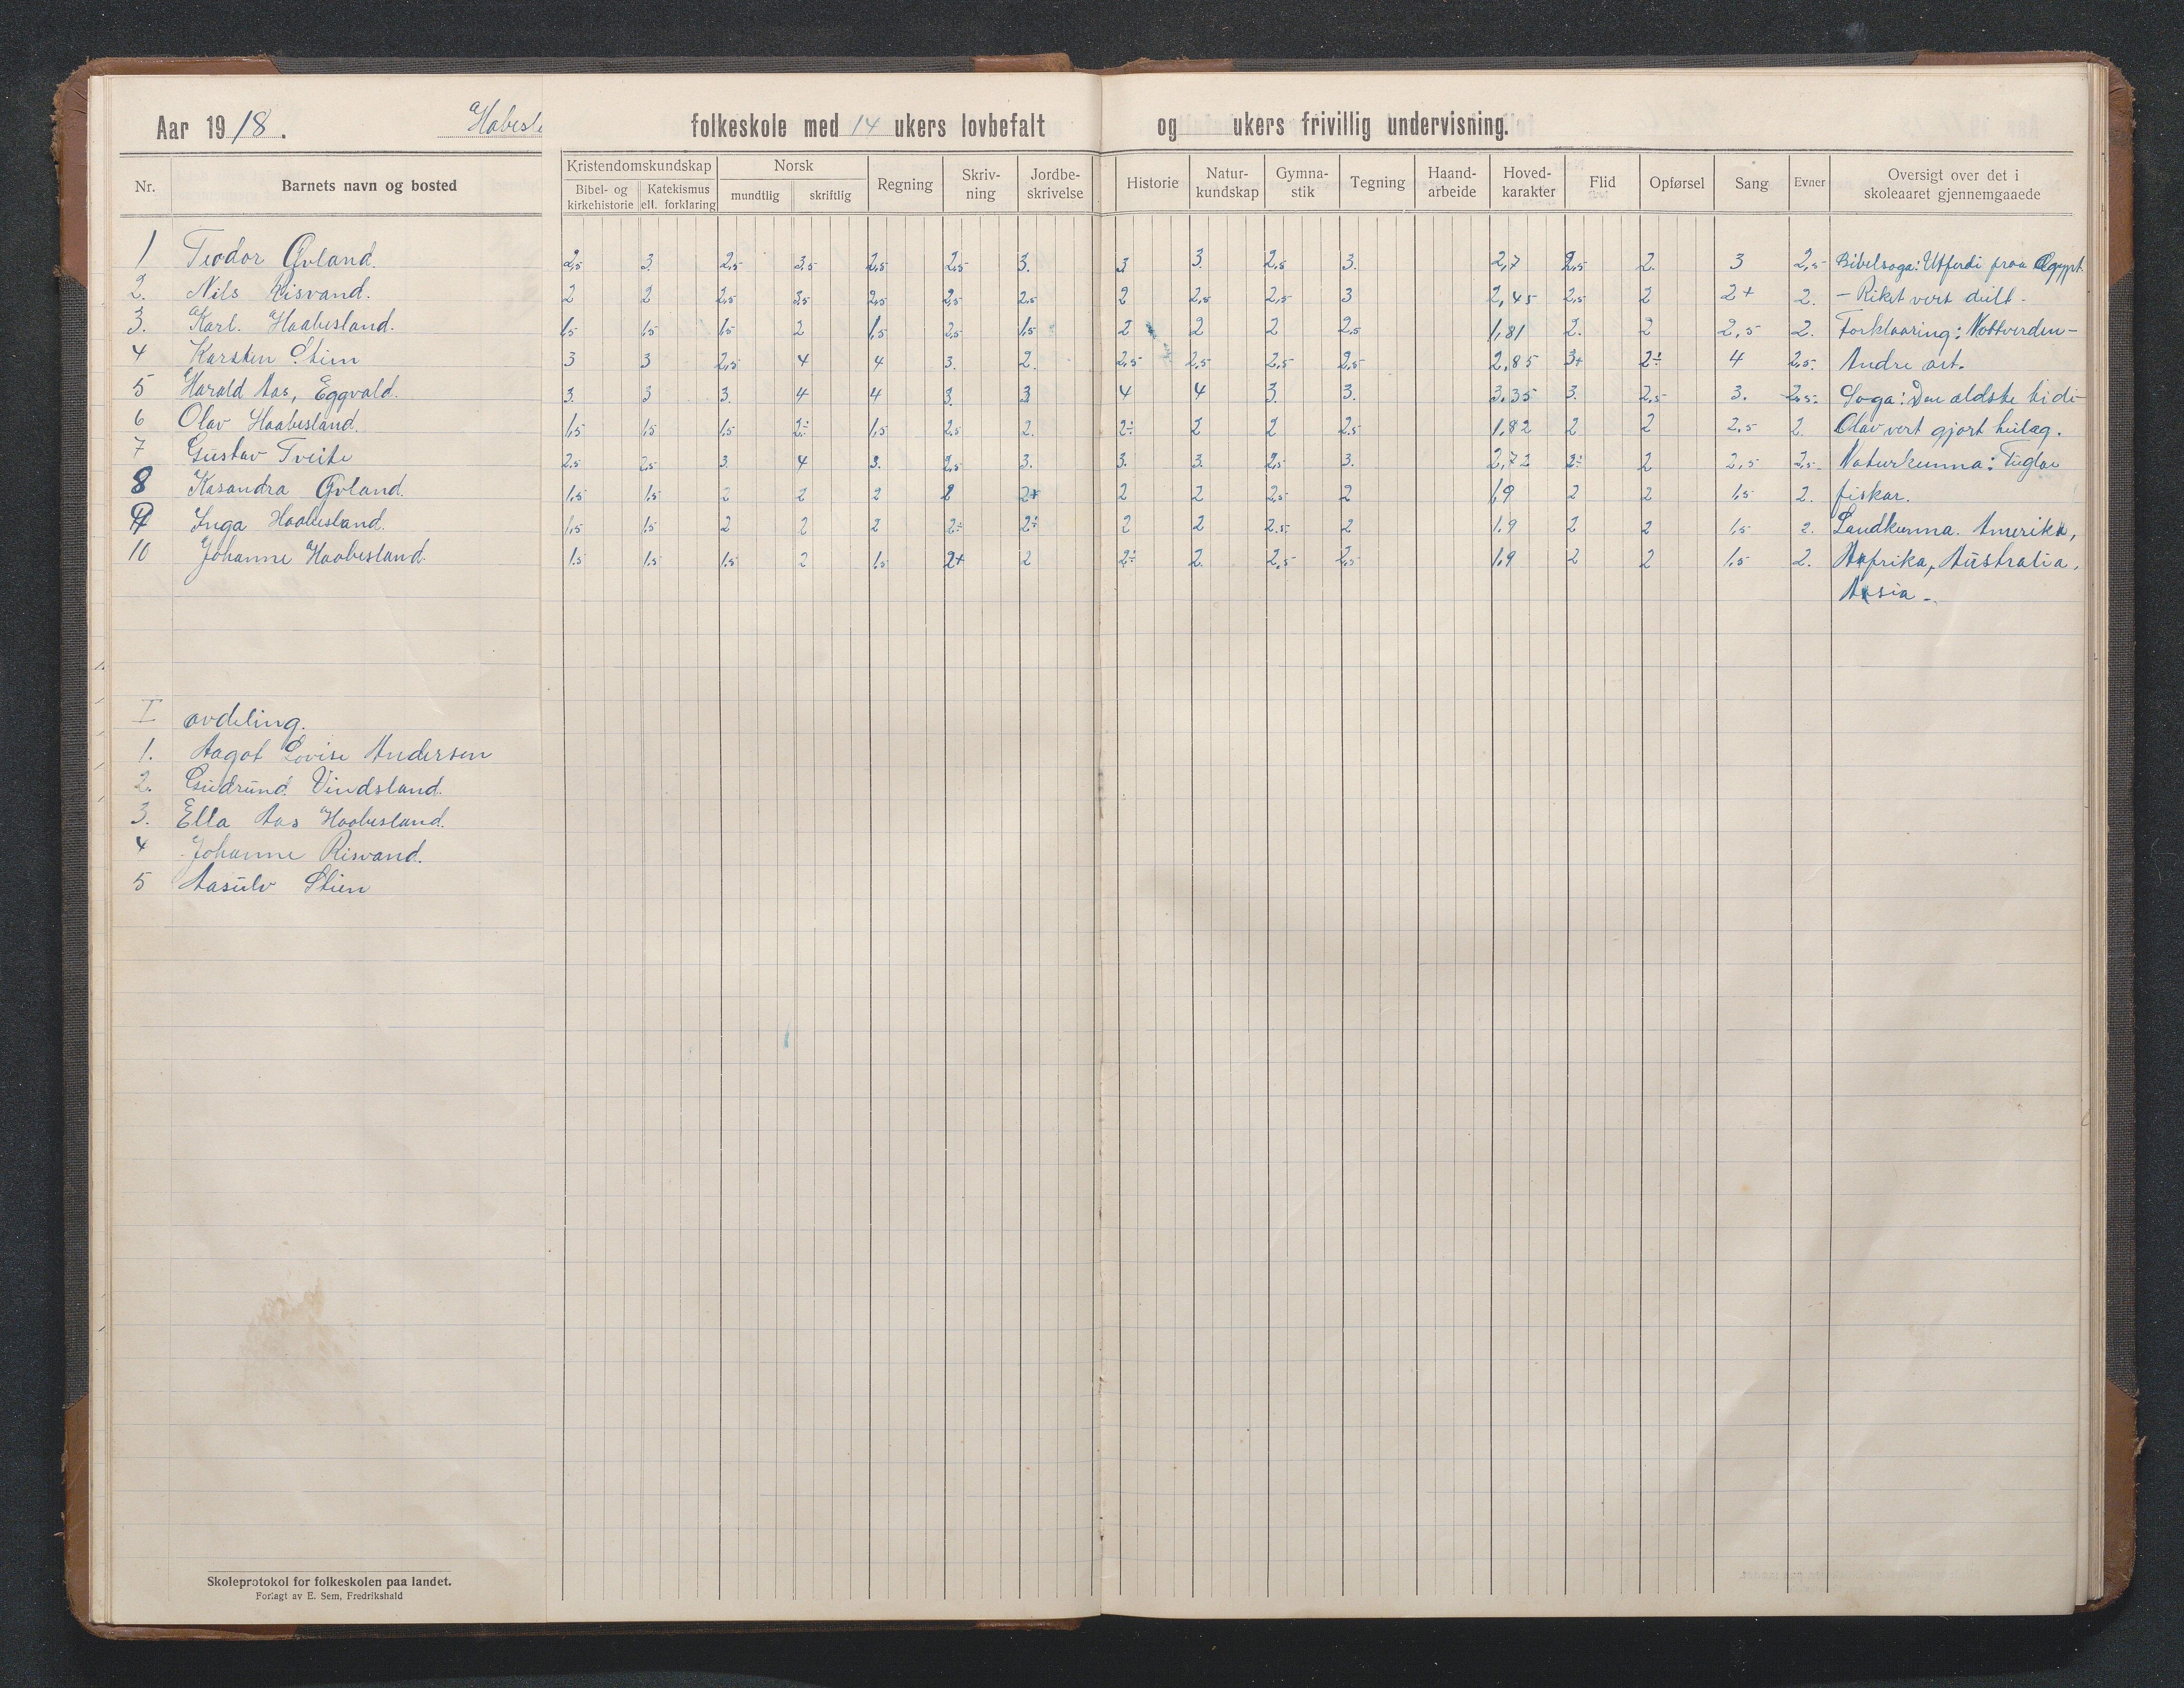 Aar 1918. Habesl folkeskole med 14 ukers lovbefalt og ukers frivillig undervisning.
Nr. Barnets navn og bosted Kristendomskundskap Bibel- og kirkehistorie Katekismus ell. forklaring Norsk mundtlig skriftlig Regning Skriv-ning Jordbe-skrivelse Historie Natur-kundskap Gymna-stik Tegning Haand-arbeide Hoved-karakter Flid Opførsel Sang Evner Oversigt over det i skoleaaret gjennemgaaede
1 Teodor Øvland. 2,5 3. 2,5 3,5 2,5 2,5 3. 3 3. 2,5 3. 2,7 2,5 2. 3 2,5 Bibelsoga: Utferdi fraa Ægypt
2. Nils Risvand. 2 2 2,5 3,5 2,5 2,5 2,5 2 2,5 2,5 3 2,45 2,5 2 2+ 2. – Riket vert deilt.
3. Karl. Haabesland. 1,5 1,5 1,5 2 1,5 2,5 1,5 2 2 2 2,5 1,81 2. 2 2,5 2. Forklaaring: Nottverden–
4 Karsten Stien 3 3 2,5 4 4 3. 2. 2,5 2,5 2,5 2,5 2,85 3+ 2÷ 4 2,5. Andre art.
5 Harald Aas, Eggvald. 3. 3 3. 4 4 3. 3 4 4 3. 3. 3.35 3. 2,5 3. 2,5. Soga: Den ældste tidi–
6 Olav Haabesland. 1,5 1,5 1,5 2÷ 1,5 2,5 2. 2÷ 2 2 2,5 1,82 2 2 2,5 2. Olav vert gjort heilag.
7 Gustav Tveite 2,5 2,5 3. 4 3. 2,5 3. 3. 3. 2,5 3. 2,72 2÷ 2 2,5 2,5. Naturkunna: Fuglar
8 Kasandra Øvland. 1,5 1,5 2 2 2 2 2+ 2 2 2,5 2 1,9 2 2 1,5 2. fiskar.
9 Inga Haabesland. 1,5 1,5 2 2 2 2÷ 2÷ 2 2 2.5 2 1.9 2 2 1,5 2. Landkunna. Amerika,
10 Johanne Haabesland. 1,5 1,5 1,5 2 1,5 2+ 2 2÷ 2. 2,5 2,5 1,9 2 2 1,5 2. Afrika, Australia,
Asia –
I avdeling.
1. Aagot Lovise Andersen
2. Gudrund Vindsland.
3. Ella Aas Haabesland.
4 Johanne Risvand.
5 Aasulv Stien
Skoleprotokol for folkeskolen paa landet.
Forlagt av E. Sem, Fredrikshald